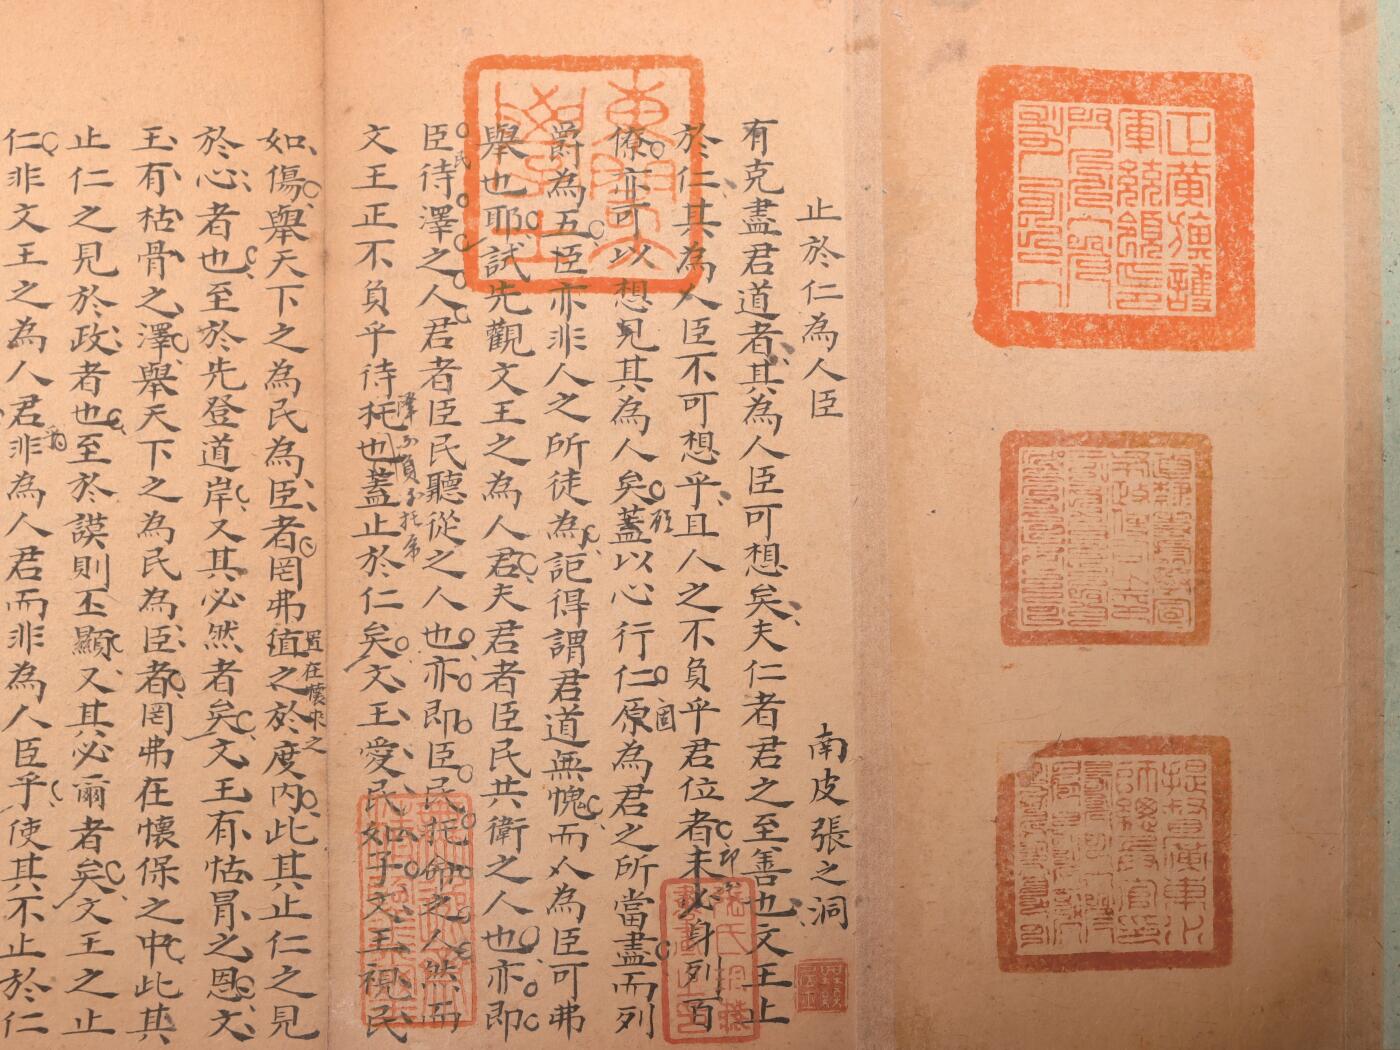 止於仁為人臣
南皮張之洞
有克盡君道者其為人臣可想矣夫仁者君之至善也文王止
於仁其為人臣不可想乎且人之不負乎君位者未必身列百
僚亦可以想見其為人矣蓋以心行仁原為君之所當盡而列
爵為五臣亦非人之所徒為詎得謂君道無愧而以為臣可弗
舉也耶試先觀文王之為人君夫君者臣民共衛之人也亦即
臣待澤之人君者臣民聽從之人也亦即臣民托命之人然而
文王正不負乎待托也蓋止於仁矣文王愛民如子文王視民
如傷舉天下之為民為臣者罔弗值之於度內此其止仁之見
於心者也至於先登道岸又其必然者矣文王有怙冒之恩文
王有枯骨之澤舉天下之為民為臣者罔弗在懷保之中此其
止仁之見於政者也至於謨則丕顯又其必爾者矣文王之止
仁非文王之為人君非為人君而非為人臣乎使其不止於仁